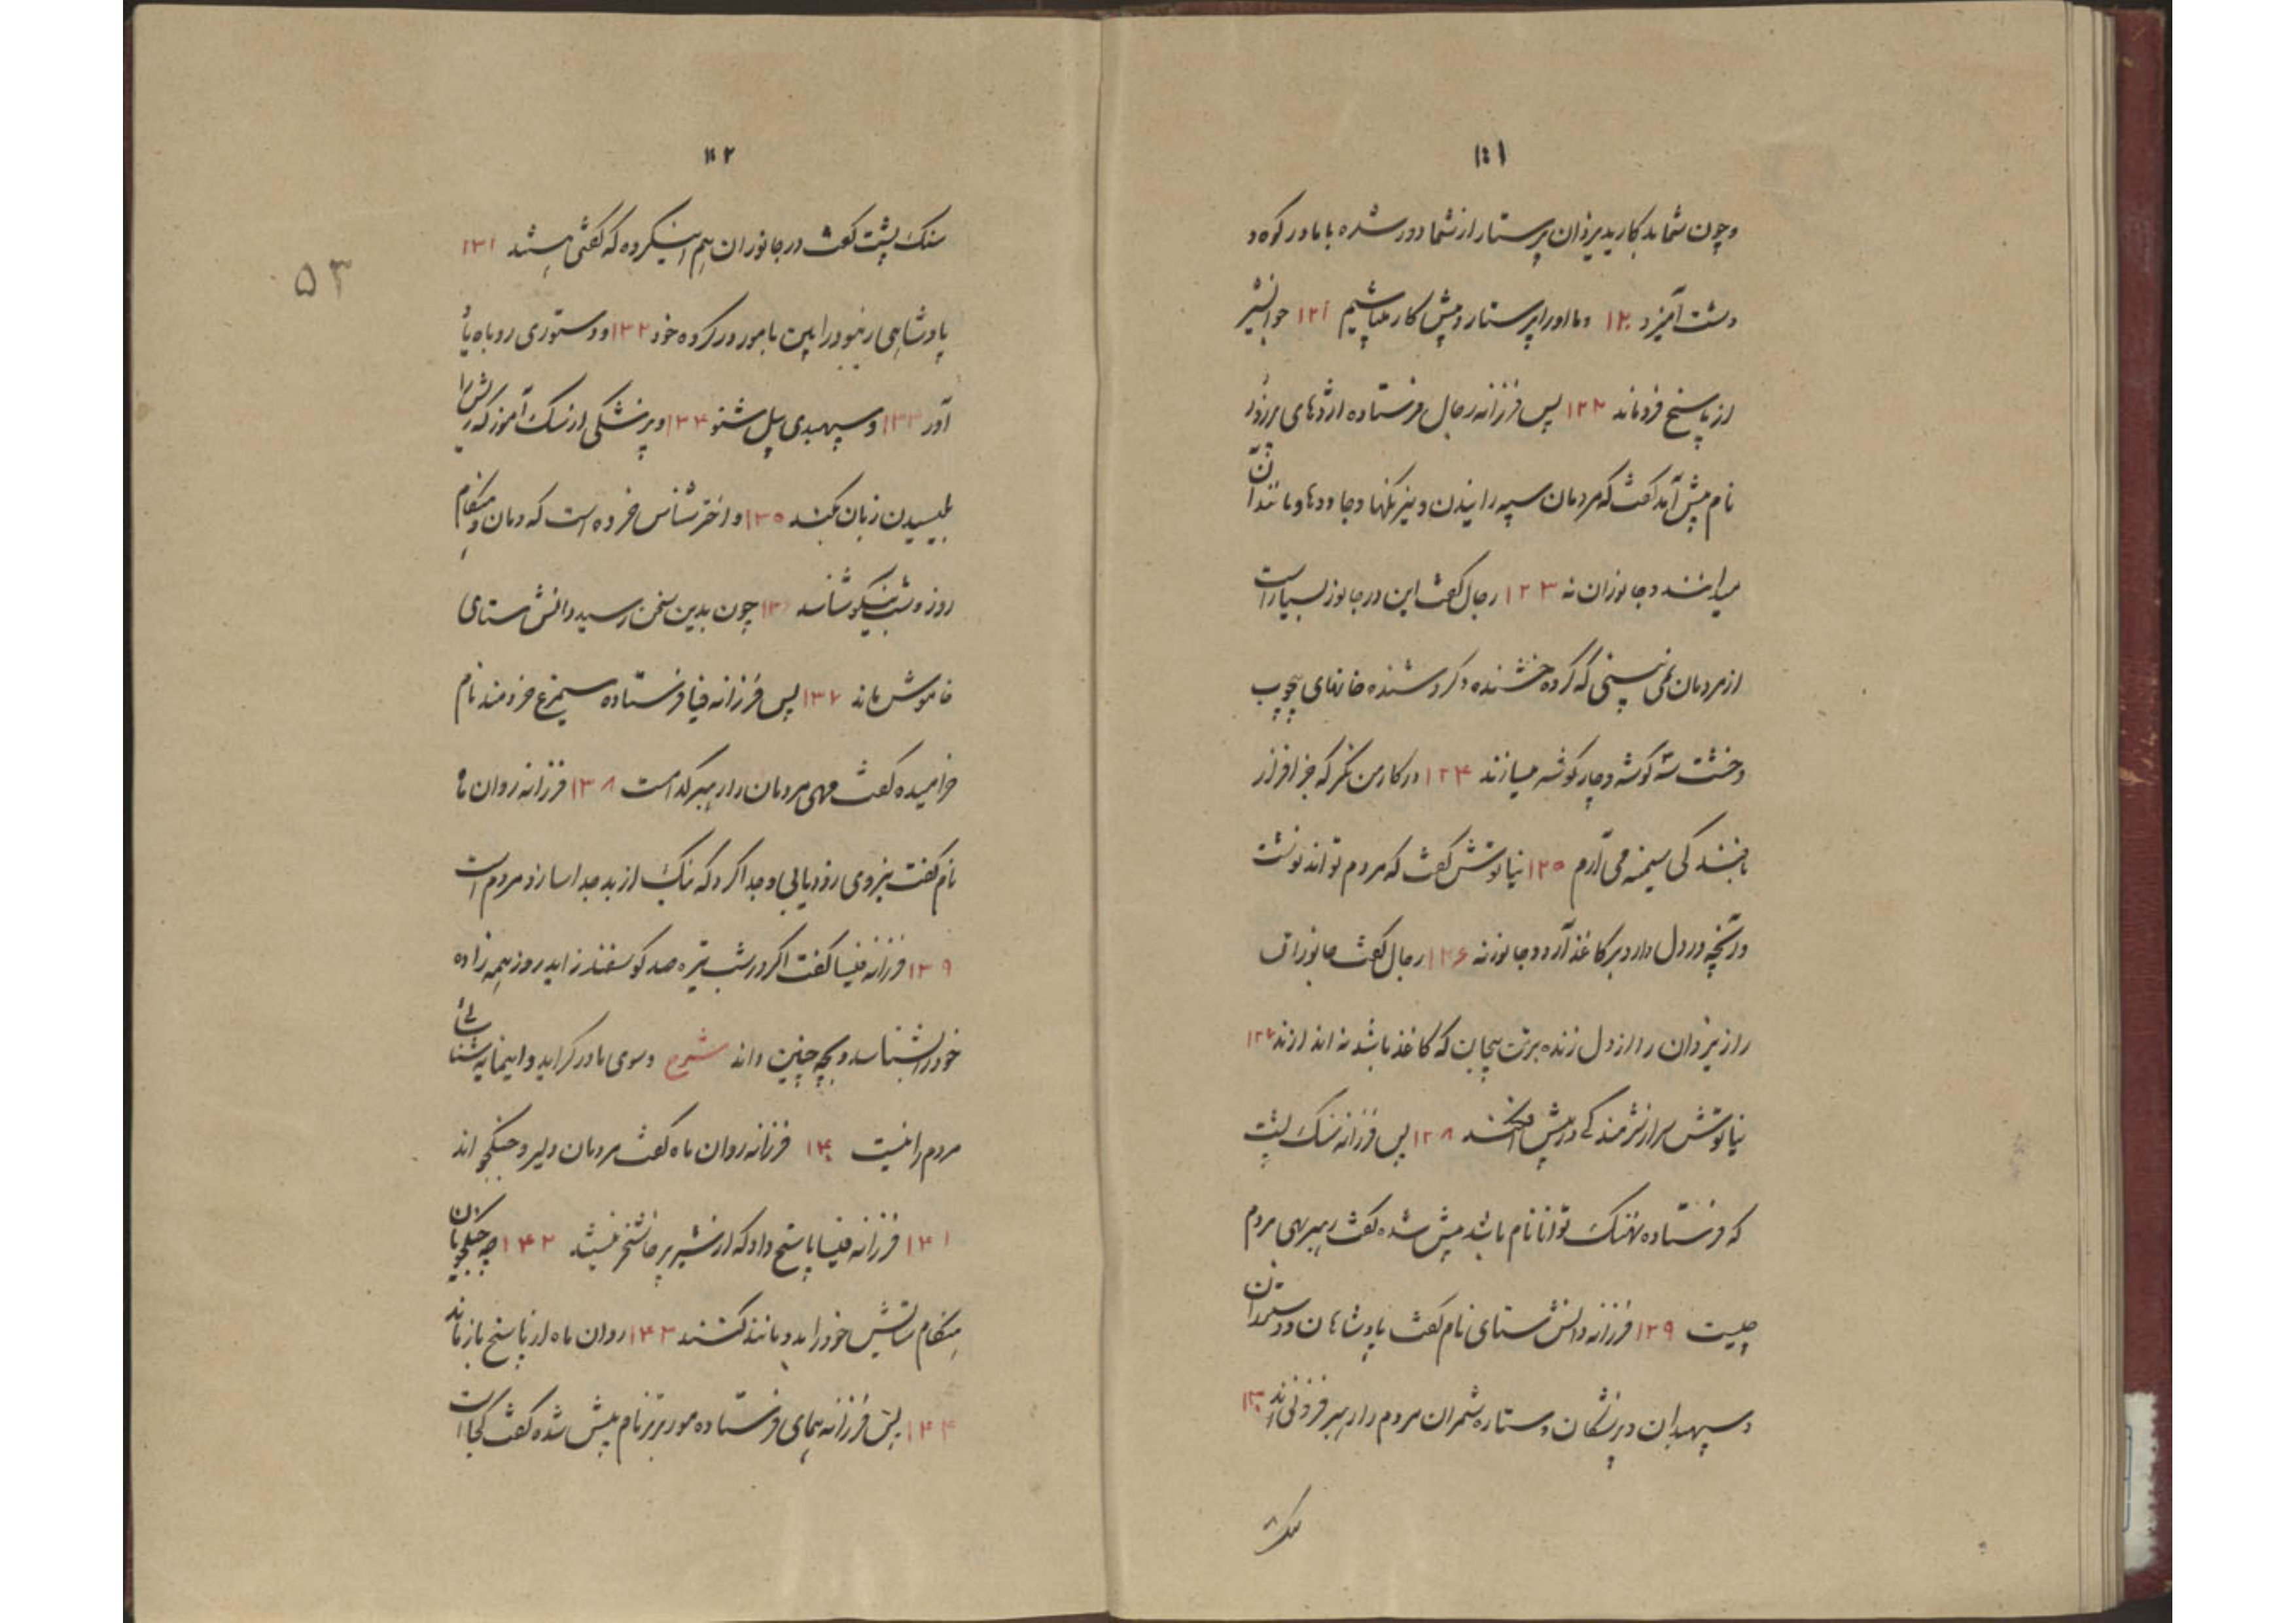 ۱۰۱
وچون شما بدکارید یزدان پرستار از شما دور شده با ما در کوه و
دشت آمیزد ۱۲۰ و ما او را پرستار و پیش کار میباشیم ۱۲۱ جوانشیر
از پاسخ فروماند ۱۲۲ پس فرزانه رجال فرستاده اژدهای
نام پیش آمد گفت که مردمان سپه رانیدن و نیرنگها و جادوها و مانند آن
میدانند و جانوران نه ۱۲۳ رجال گفت این در جانور بسیار است
از مردمان نمی بینی که گرده خشنده و کردشنده خانهای بی چوب
وخشت سه کوشه و چار کوشه میسازند ۱۲۴ در کار من نگر که جز افزار
بافندگی سیمه می آرم ۱۲۵ نیاتوش گفت که مردم تواند نوشت
و آنچه در دل دارد بر کاغذ آرد و جانور نه ۱۲۶ رجال گفت جانوران
راز یزدان را از دل زنده برتن بیجان که کاغذ باشد نه اندازند ۱۲۷
نیاتوش سر از شرمندگی در پیش افکند ۱۲۸ پس فرزانه سنک پشت
که فرستاده نهنک توانا نام باشد پیش شده گفت رهبر بهی مردم
چیست ۱۲۹ فرزانه دانش ستای نام گفت پادشاهان و دستوران
و سپهبدان و پزشگان و ستاره شمران مردم را رهبر فزونی اند ۱۳۰
سنک
۱۰۲
سنک پشت گفت در جانوران هم این گروه که گفتی هستند ۱۳۱
پادشاهی زنبور را ببین با مور در گروه خود ۱۳۲ و دستوری روباه یاد
آور ۱۳۳ و سپهبدی پیل شنو ۱۳۴ و پزشکی از سک آموز که ریش را
بلیسیدن زبان نیکو کند ۱۳۵ و اخترشناس خروه است که دمان و هنگام
روز و شب نیکو شناسد ۱۳۶ چون بدین سخن رسید دانش ستای
خاموش ماند ۱۳۷ پس فرزانه فنیا فرستاده سیمرغ خردمند نام
خرامیده گفت مهی مردمان را رهبر کدامست ۱۳۸ فرزانه روان ماه
نام گفت نیروی رود یابی و جدا کرد که نیک از بد جدا سازد مردم است
۱۳۹ فرزانه فنیسا گفت اگر در شب تیره صد کوسفند زاید روز همه زاده
خود را بشناسد و بچه چنین داند شرح و سوی مادر گراید و اینمایه شناسائی
مردم را نیست ۱۴۰ فرزانه روان ماه گفت مردمان دلیر و جنکجو اند
۱۴۱ فرزانه فنیسا پاسخ داد که از شیر پرخاشخر نیستند ۱۴۲ چه جنکجویان
هنگام ستایش خود را بدو مانند کنند ۱۴۳ روان ماه از پاسخ باز ماند
۱۴۴ پس فرزانه همای فرستاده مور برتر نام پیش شده گفت کجاست
۵۳